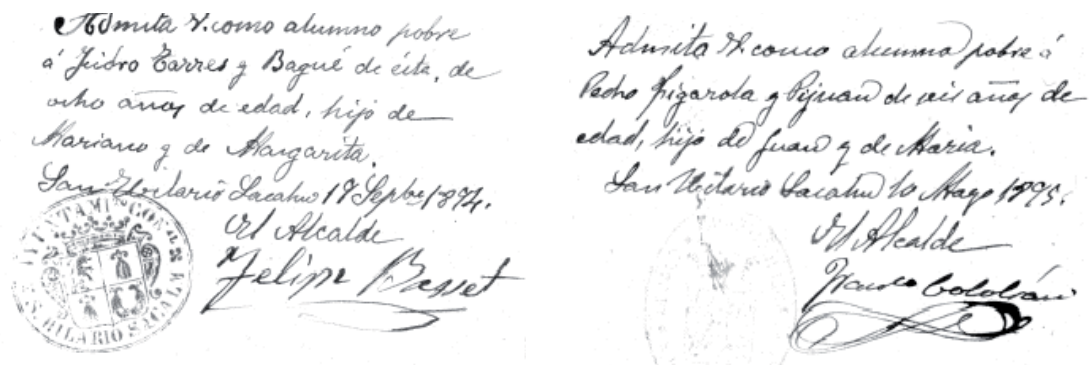 Admita V. como alumno pobre
á Isidro Tarres y Bagué de ésta, de
ocho años de edad, hijo de
Mariano y de Margarita.
San Hilario Sacalm 17 Sepbre 1894.
El Alcalde
Felipe Basset
S. HILARIO SACALM
Admita V. como alumno pobre á
Pedro Figarola y Pijuan de seis años de
edad, hijo de Juan y de Maria.
San Hilario Sacalm 10 Mayo 1895.
El Alcalde